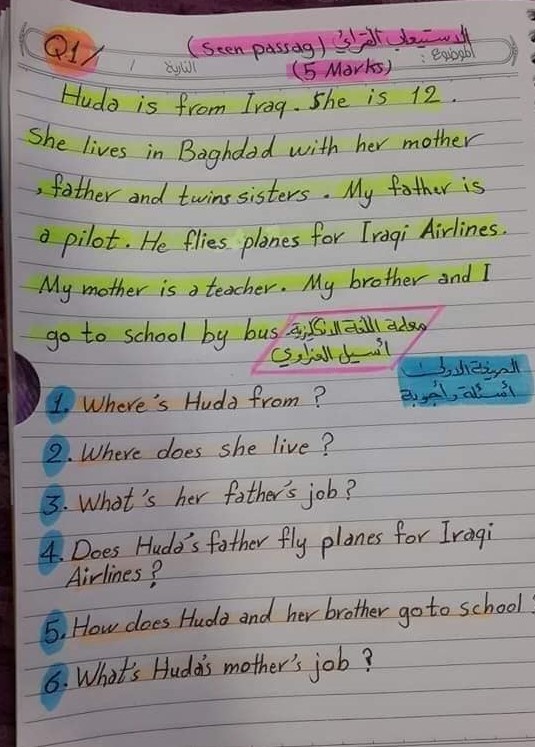 Q1/ (Seen passag) الاستيعاب القرائي
الموضوع : التاريخ / /
(5 Marks)
Huda is from Iraq. She is 12.
She lives in Baghdad with her mother
, father and twins sisters. My father is
a pilot. He flies planes for Iraqi Airlines.
My mother is a teacher. My brother and I
go to school by bus معلمة اللغة الانكليزية
أسيل العزاوي
الصيغة الاولى
أسئلة وأجوبة
1. Where's Huda from?
2. Where does she live?
3. What's her father's job?
4. Does Huda's father fly planes for Iraqi
Airlines?
5. How does Huda and her brother go to school?
6. What's Huda's mother's job?